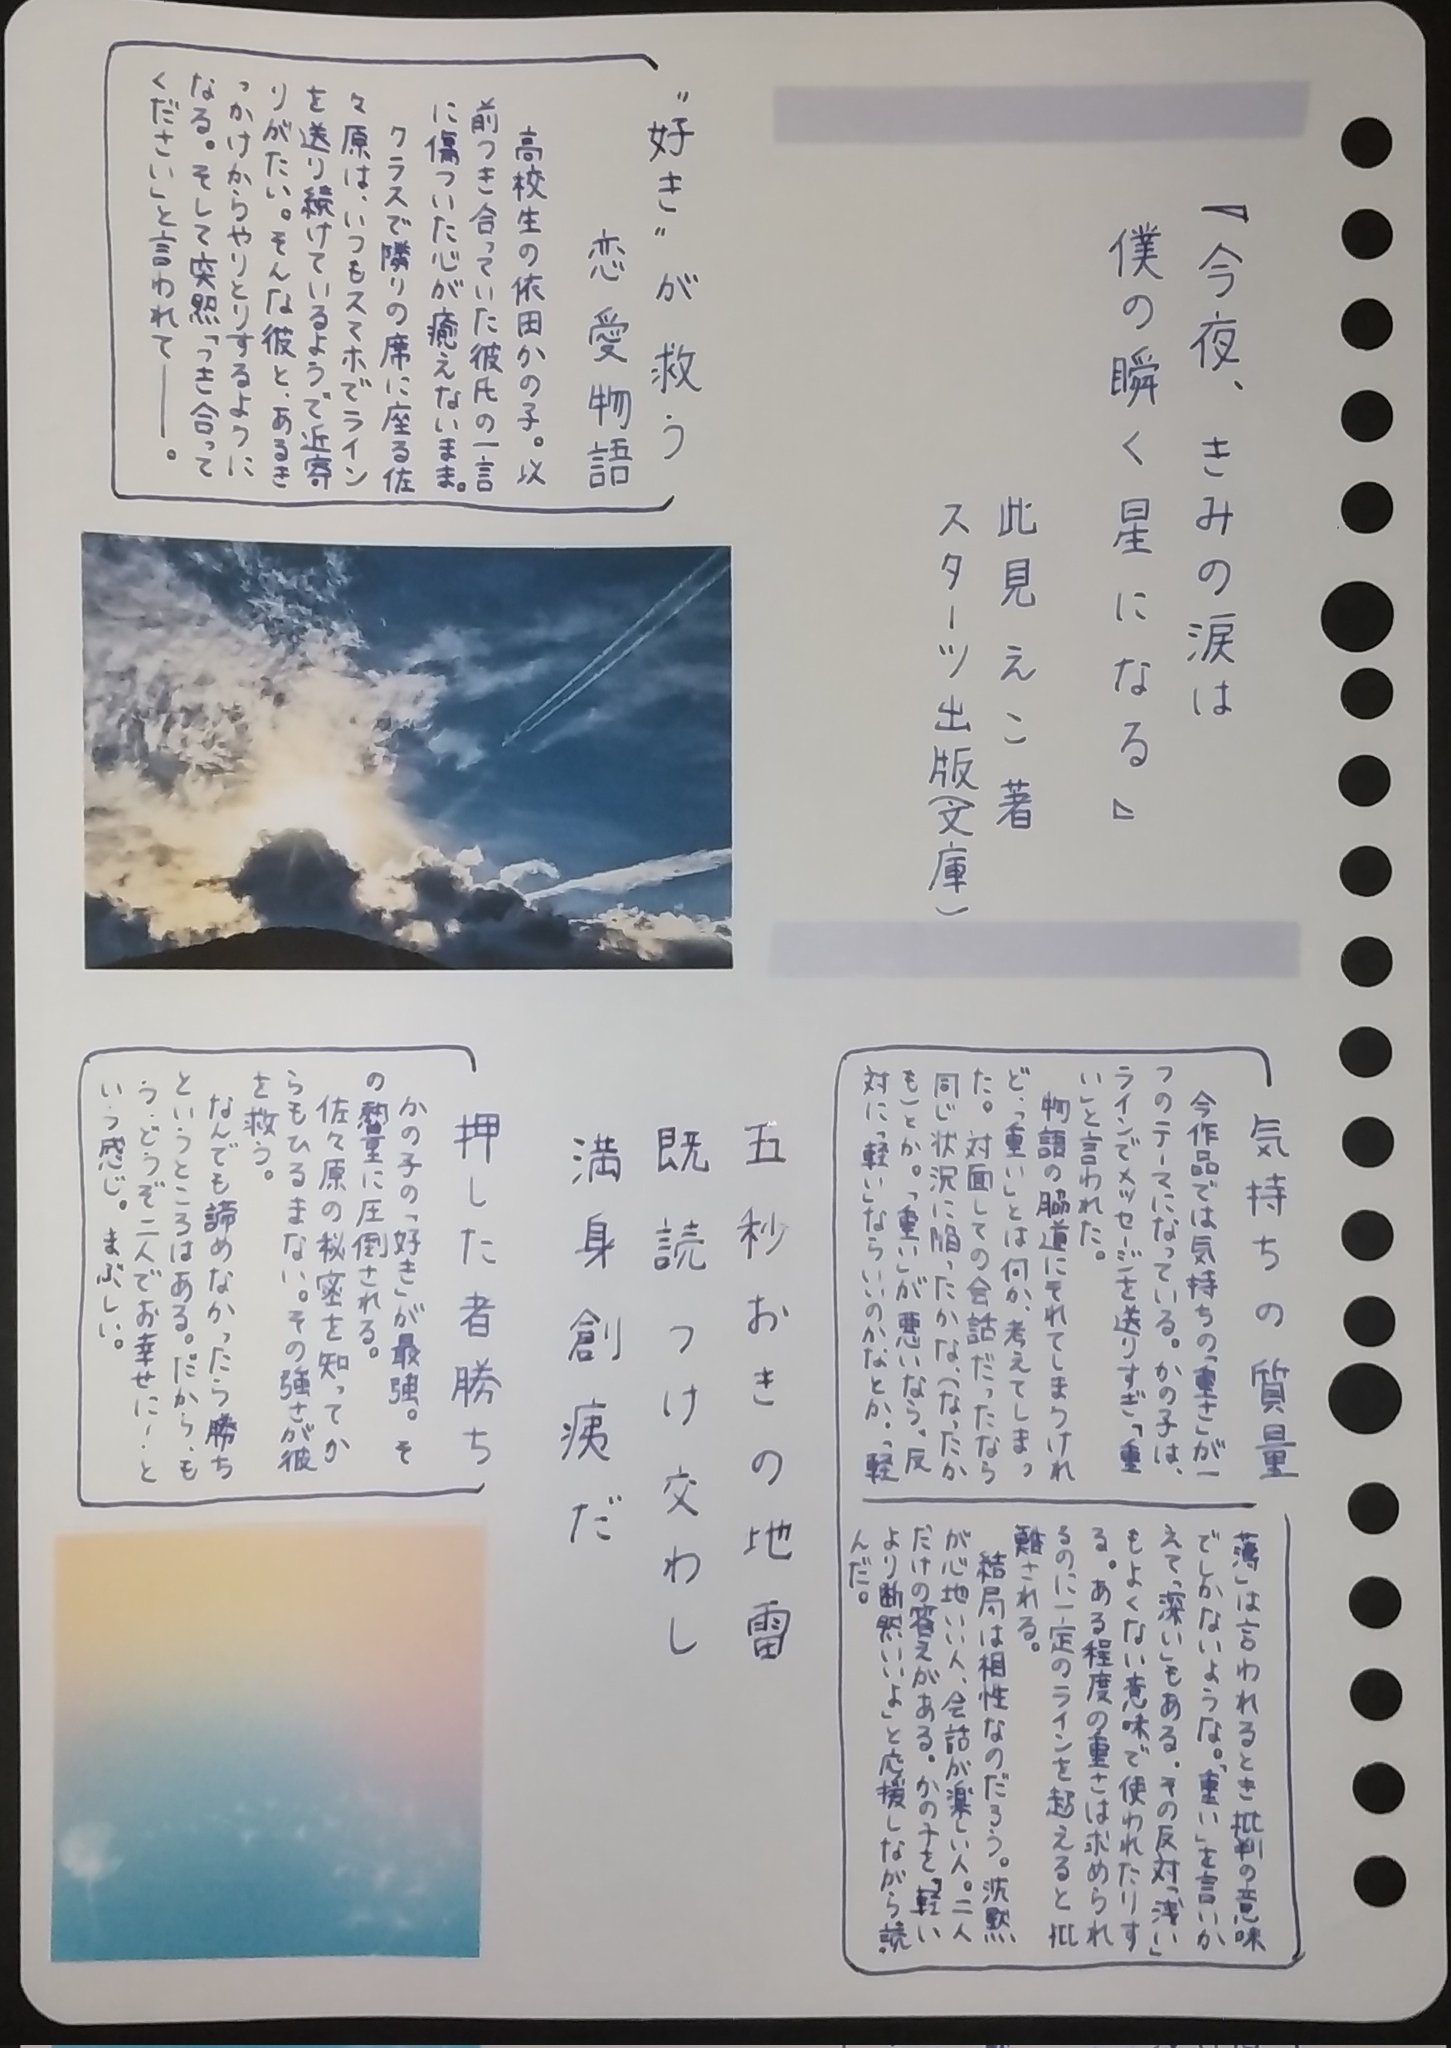 『今夜、きみの涙は
僕の瞬く星になる』
此見えこ著
スターツ出版(文庫)
"好き"が救う
恋愛物語
高校生の依田かの子。以
前つき合っていた彼氏の一言
に傷ついた心が癒えないまま。
クラスで隣りの席に座る佐
々原は、いつもスマホでライン
を送り続けているようで近寄
りがたい。そんな彼と、あるき
っかけからやりとりするように
なる。そして突然「つき合って
ください」と言われて――。
気持ちの質量
今作品では気持ちの「重さ」が一
つのテーマになっている。かの子は、
ラインでメッセージを送りすぎ「重
い」と言われた。
物語の脇道にそれてしまうけれ
ど、「重い」とは何か、考えてしまっ
た。対面しての会話だったなら
同じ状況に陥ったかな、(なったか
も)とか。「重い」が悪いなら、反
対に「軽い」ならいいのかなとか。「軽
薄」は言われるとき批判の意味
でしかないような。「重い」を言いか
えて「深い」もある。その反対「浅い」
もよくない意味で使われたりす
る。ある程度の重さは求められ
るのに一定のラインを超えると批
難される。
結局は相性なのだろう。沈黙
が心地いい人、会話が楽しい人。二人
だけの答えがある。かの子を「軽い
より断然いいよ」と応援しながら読
んだ。
五秒おきの地雷
既読つけ交わし
満身創痍だ
押した者勝ち
かの子の「好き」が最強。そ
の熱量に圧倒される。
佐々原の秘密を知ってか
らもひるまない。その強さが彼
を救う。
なんでも諦めなかったら勝ち
というところはある。だから、も
う、どうぞ二人でお幸せに!と
いう感じ。まぶしい。